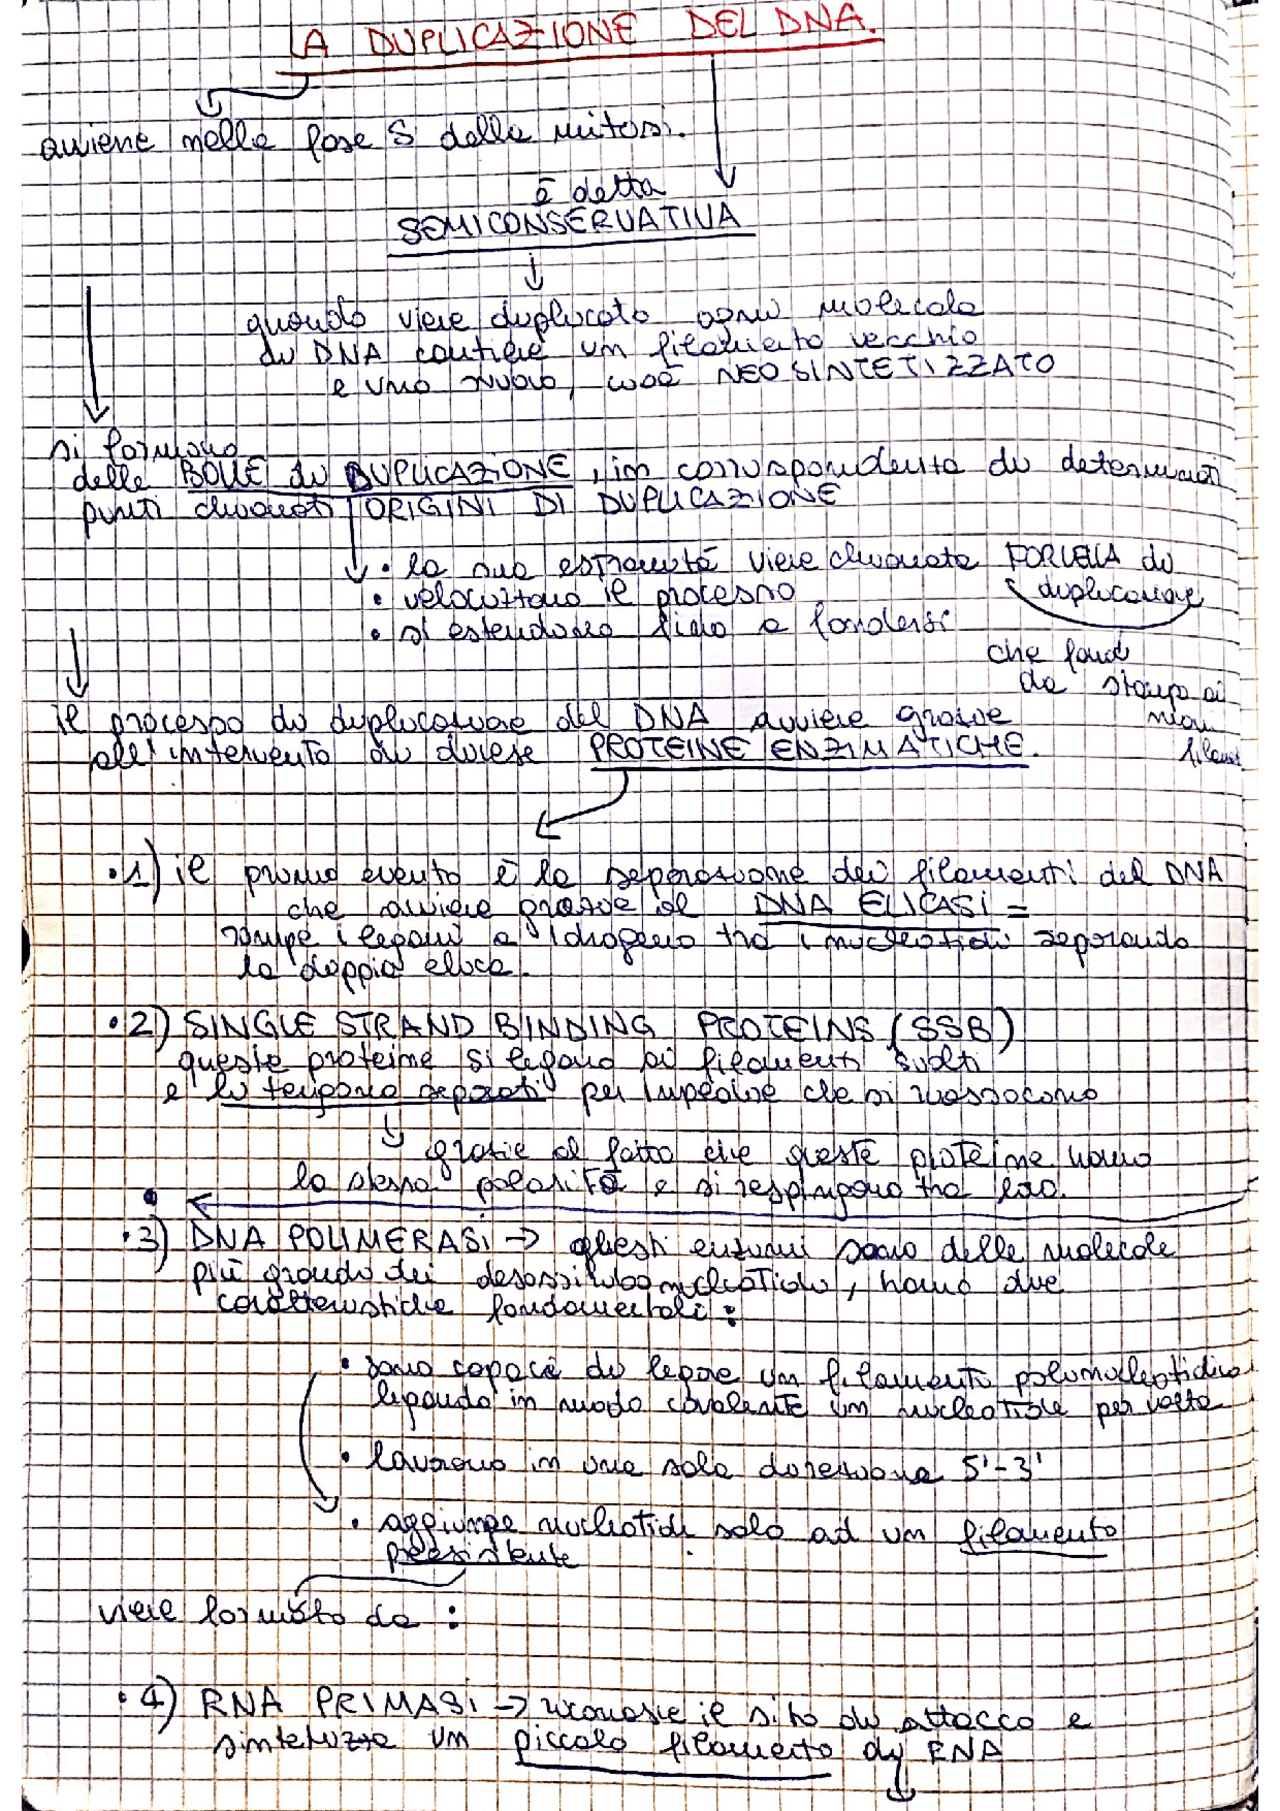 LA DUPLICAZIONE DEL DNA.
avviene nella fase S della mitosi.
è detta
SEMICONSERVATIVA
quando viene duplicato ogni molecola
di DNA contiene un filamento vecchio
e uno nuovo, cioè NEOSINTETIZZATO
si formano
delle BOLLE di DUPLICAZIONE, in corrispondenza di determinati
punti chiamati ORIGINI DI DUPLICAZIONE
• la sua estremità viene chiamata FORCELLA di
duplicazione
• velocizzano il processo
• si estendono fino a fondersi
che fanno
da stampo ai
nuovi
filam
il processo di duplicazione del DNA avviene grazie
all'intervento di diverse PROTEINE ENZIMATICHE.
•1) il primo evento è la separazione dei filamenti del DNA
che avviene grazie al DNA ELICASI =
rompe i legami a idrogeno tra i nucleotidi separando
la doppia elica.
•2) SINGLE STRAND BINDING PROTEINS (SSB)
queste proteine si legano ai filamenti svolti
e li tengono separati per impedire che si riassociano
grazie al fatto che queste proteine hanno
la stessa polarità e si respingono tra loro.
•3) DNA POLIMERASI → questi enzimi sono delle molecole
più grandi dei desossiribonucleotidi, hanno due
caratteristiche fondamentali:
• sono capaci di legare un filamento polinucleotidico
legando in modo covalente un nucleotide per volta
• lavorano in una sola direzione 5'-3'
• aggiunge nucleotidi solo ad un filamento
preesistente
viene formato da:
•4) RNA PRIMASI → riconosce il sito di attacco e
sintetizza un piccolo filamento di RNA